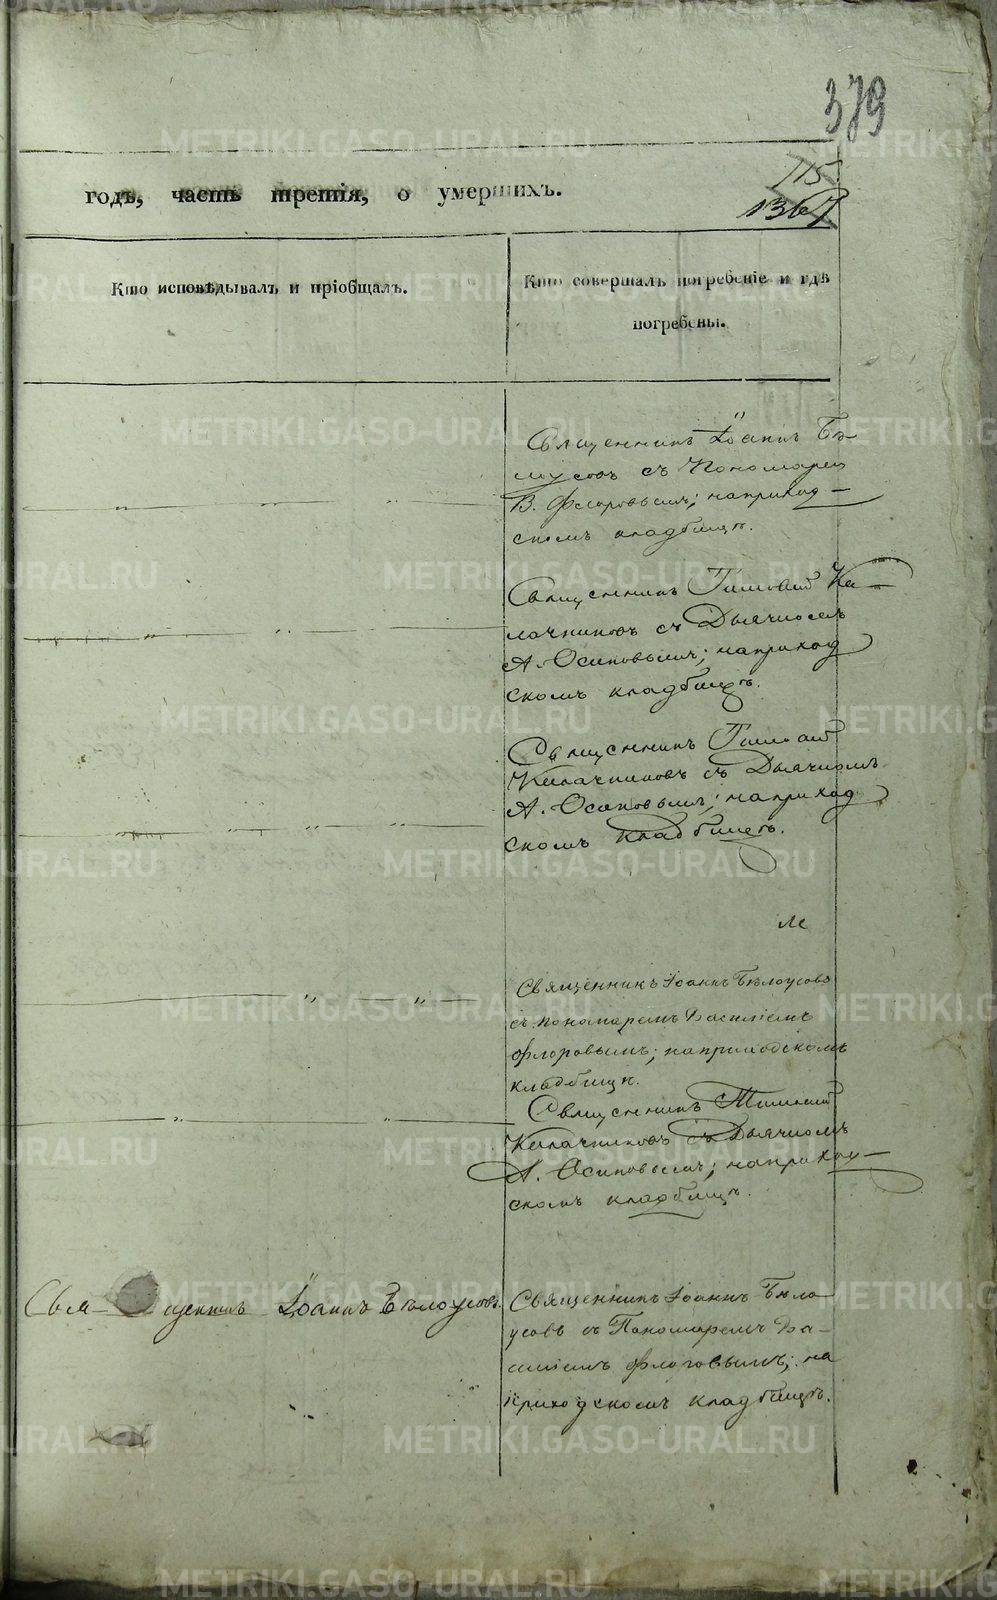 379
115
1367
годъ, часть третія, о умершихъ.
Кто исповѣдывалъ и пріобщалъ.
Кто совершалъ погребеніе и гдѣ
погребены.
Священникъ Іоаннъ Бѣ-
лоусовъ съ Пономаремъ
В. Флоровымъ; на приход-
скомъ кладбищѣ.
Священникъ Тимофей Ка-
лачниковъ съ Дьячкомъ
А. Осиповымъ; на приход
скомъ кладбищѣ.
Священникъ Тимофей
Калачниковъ съ Дьячкомъ
А. Осиповымъ; на приход
скомъ кладбищѣ.
Священникъ Іоаннъ Бѣлоусовъ
съ пономаремъ Василіемъ
Флоровымъ; на приходскомъ
кладбищѣ.
Священникъ Тимофей
Калачниковъ съ Дьячкомъ
А. Осиповымъ; на приход-
скомъ кладбищѣ.
Свя- щенникъ Іоаннъ Бѣлоусовъ.
Священникъ Іоаннъ Бѣло
усовъ съ Пономаремъ Ва-
силіемъ Флоровымъ; на
приходскомъ кладбищѣ.
METRIKI.GASO-URAL.RU